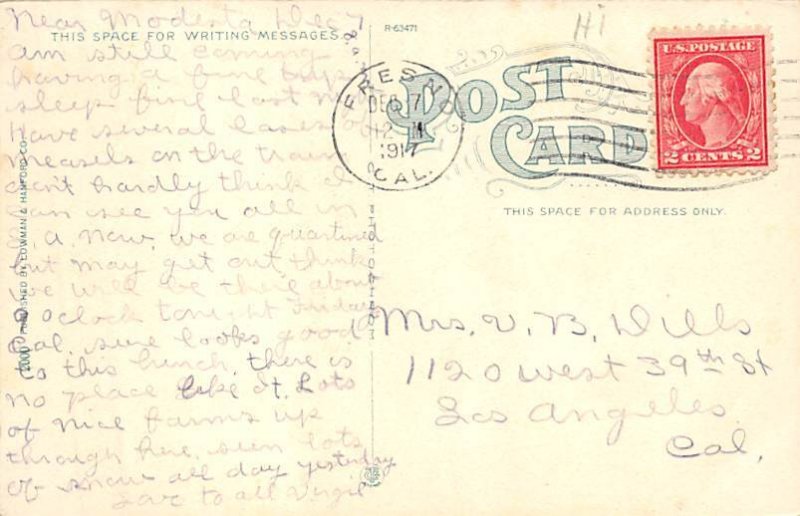 Near Modesta Dec 7
THIS SPACE FOR WRITING MESSAGES.
am still coming
having a fine trip
sleep fine last
Have several cases of
measels on the train
don't hardly think I
can see you all in
L. A. now, we are quartined
but may get out, think
we will be there about
o clock tonight Friday
Cal. sure looks good
to this bunch, there is
no place like it. Lots
of nice farms up
through here, seen lots
of snow all day yesterday
Love to all Virgil
PUBLISHED BY LOWMAN & HANFORD CO.
R-63471
Hi
POST CARD
FRESNO
DEC 7
12 M
1917
CAL.
U.S. POSTAGE
2 CENTS 2
THIS SPACE FOR ADDRESS ONLY.
Mrs. V. B. Dills
1120 West 39th St
Los Angeles
Cal.